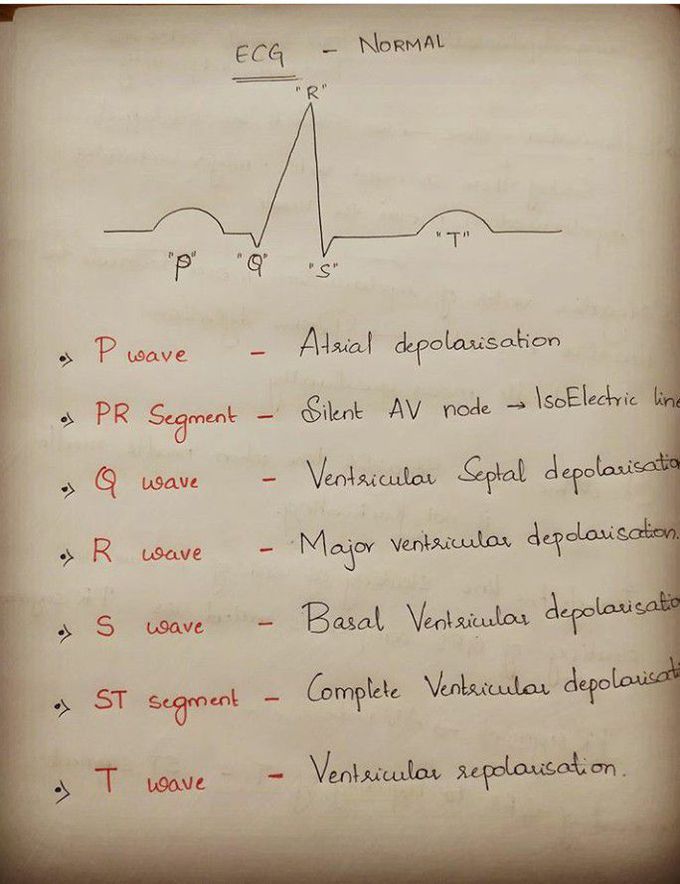 ECG - NORMAL
"R"
"P" "Q" "S" "T"
P wave - Atrial depolarisation
PR Segment - Silent AV node → IsoElectric line
Q wave - Ventricular Septal depolarisatio
R wave - Major ventricular depolarisation.
S wave - Basal Ventricular depolarisatio
ST segment - Complete Ventricular depolarisati
T wave - Ventricular repolarisation.